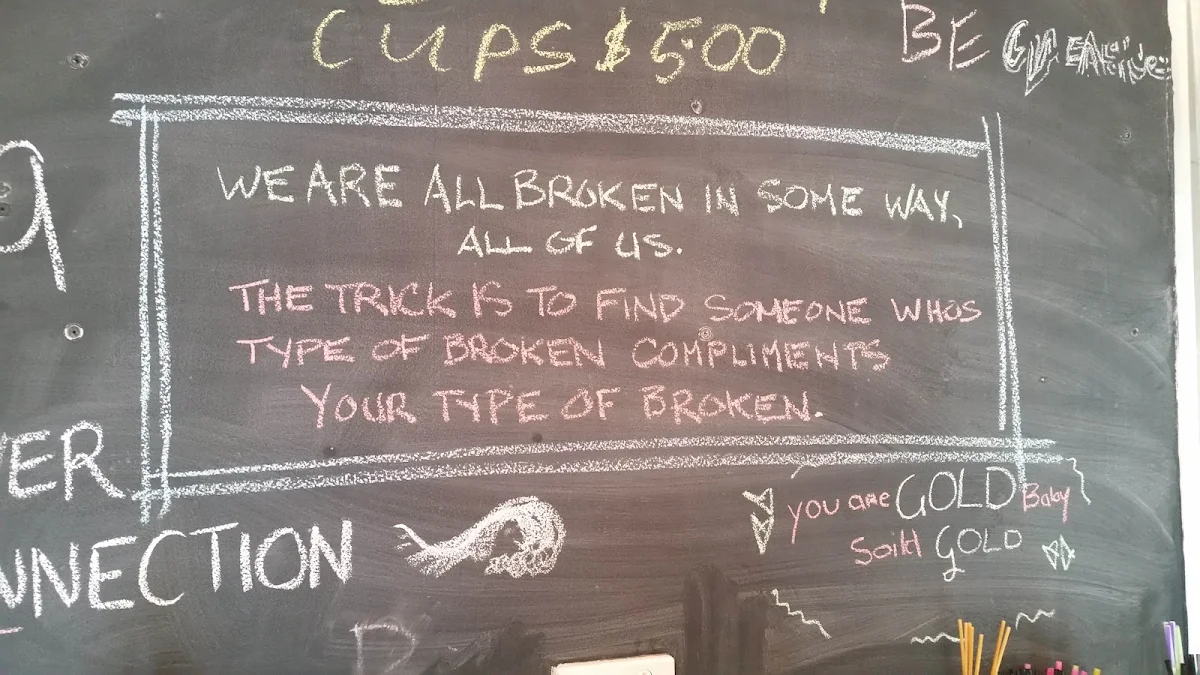 CUPS $500
BE
WE ARE ALL BROKEN IN SOME WAY,
ALL OF US.
THE TRICK IS TO FIND SOMEONE WHOS
TYPE OF BROKEN COMPLIMENTS
YOUR TYPE OF BROKEN.
VER
NNECTION
you are GOLD Baby
Soild GOLD